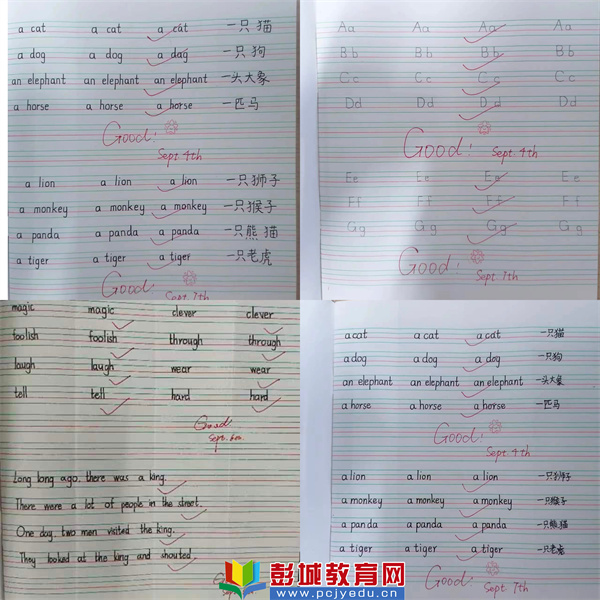 a cat a cat a cat 一只猫
a dog a dog a dog 一只狗
an elephant an elephant an elephant 一头大象
a horse a horse a horse 一匹马
Good!
Sept. 4th
a lion a lion a lion 一只狮子
a monkey a monkey a monkey 一只猴子
a panda a panda a panda 一只熊猫
a tiger a tiger a tiger 一只老虎
Good!
Sept. 7th
Aa Aa Aa Aa
Bb Bb Bb Bb
Cc Cc Cc Cc
Dd Dd Dd Dd
Good! Sept. 4th
Ee Ee Ee Ee
Ff Ff Ff Ff
Gg Gg Gg Gg
Good! Sept. 7th
magic magic clever clever
foolish foolish through through
laugh laugh wear wear
tell tell hard hard
Good!
Long long ago, there was a king.
There were a lot of people in the street.
One day, two men visited the king.
They looked at the king and shouted.
a cat a cat a cat 一只猫
a dog a dog a dog 一只狗
an elephant an elephant an elephant 一头大象
a horse a horse a horse 一匹马
Good!
Sept. 4th
a lion a lion a lion 一只狮子
a monkey a monkey a monkey 一只猴子
a panda a panda a panda 一只熊猫
a tiger a tiger a tiger 一只老虎
Good! Sept. 7th
彭城教育网
www.pcjyedu.cn